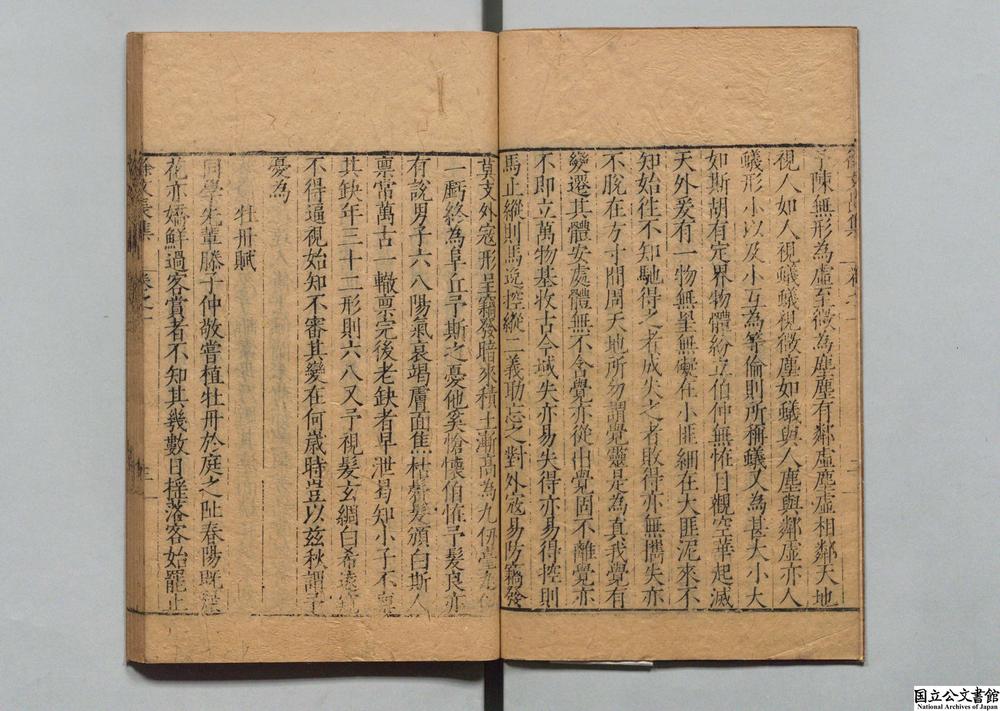 陳無形為虛至微為塵塵有鄰虛塵虛相鄰天地
視人如人視蟻蟻視微塵如蟻與人塵與鄰虛亦人
蟻形小以及小互為等倫則所稱蟻又為甚大小大
如斯胡有定界物體紛立伯仲無恠目觀空華起滅
天外爰有一物無罣無礙在小匪細在大匪泥來不
知始往不知馳得之者成失之者敗得亦無攜失亦
不脫在方寸間周天地所勿謂覺靈是為真我覺有
變遷其體安處體無不含覺亦從出覺固不離覺亦
不即立萬物基收古今域失亦易失得亦易得控則
馬止縱則馬逸控縱二義助忘之對外寇易防竊發
莫支外寇形呈竊發暗來積土漸高為九仞臺九仞
一虧終為阜丘予斯之憂他奚愴懷伯恠予髮良亦
有說男子六八陽氣衰竭膚面焦枯鬢髮頒白斯人
稟常萬古一轍稟完後老缺者早泄曷知小子不稟
其缺年三十二形則六八又予視髮玄綢白希遠
不得逼視始知不審其變在何歲時豈以茲秋謂予
憂為
牡丹賦
同學先輩滕子仲敬嘗植牡丹於庭之阯春陽既
花亦嬌鮮過客賞者不知其幾數日搖落客始罷止
徐文長集
卷之一